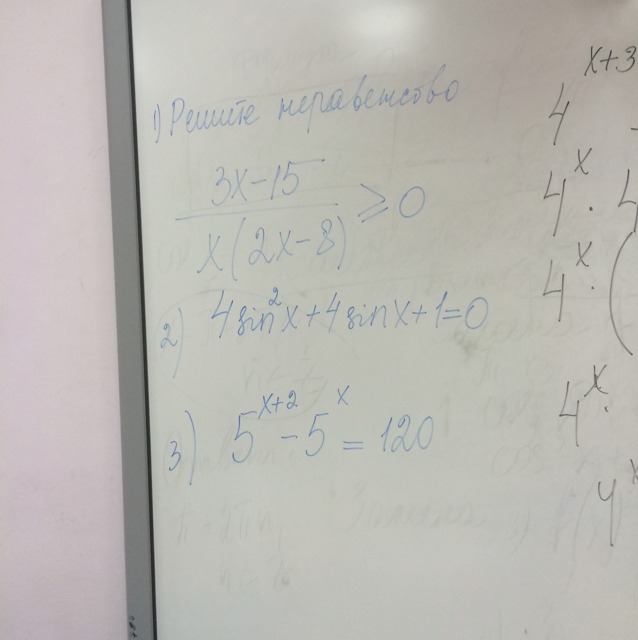 1) Решите неравенство
3x-15
x(2x-8) ≥ 0
2) 4sin²x+4sinx+1=0
3) 5^x+2 - 5^x = 120
4^x+3
4^x · 4
4^x · (
4^x ·
4^x